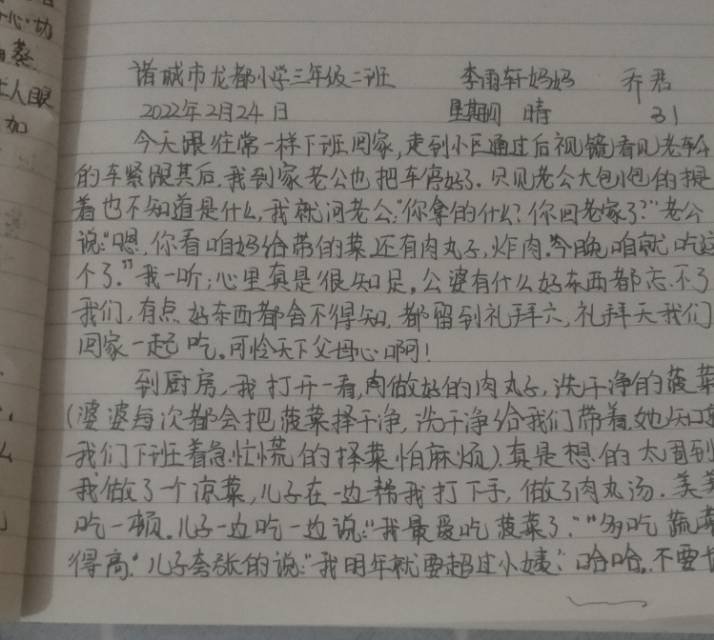 心·切
人眼
加
诸城市龙都小学三年级二班 李雨轩妈妈 乔君
2022年2月24日 星期四 晴 31
今天跟往常一样下班回家,走到小区通过后视镜看见老车
的车紧跟其后,我到家老公也把车停好了。只见老公大包小包的提
着也不知道是什么,我就问老公:“你拿的什么?你回老家了?”老公
说:“嗯,你看咱妈给带的菜还有肉丸子,炸肉。今晚咱就吃这
个了。”我一听,心里真是很知足。公婆有什么好东西都忘不了
我们,有点好东西都舍不得知,都留到礼拜六,礼拜天我们
回家一起吃。可怜天下父母心啊!
到厨房,我打开一看,肉做好的肉丸子,洗干净的菠菜
(婆婆每次都会把菠菜择干净,洗干净给我们带着,她知
我们下班着急忙慌的择菜怕麻烦)。真是想的太周到
我做了一个凉菜,儿子在一边帮我打下手,做了肉丸汤。美美
吃一顿。儿子一边吃一边说:“我最爱吃菠菜了。”“多吃蔬菜
得高。”儿子夸张的说:“我明年就要超过小姨”。哈哈,不要